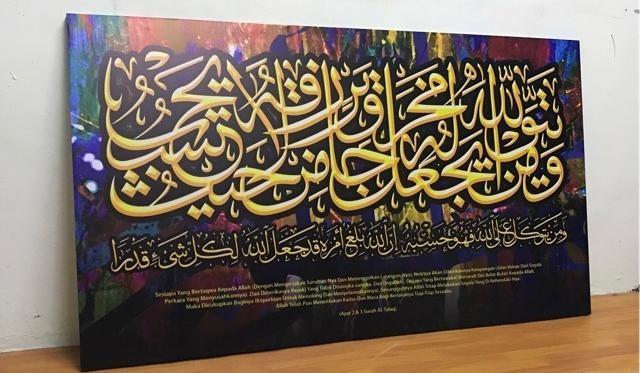 ومن يتق الله يجعل له مخرجا ويرزقه من حيث لا يحتسب
ومن يتوكل على الله فهو حسبه إن الله بالغ أمره قد جعل الله لكل شيء قدرا
Sesiapa Yang Bertaqwa Kepada Allah (Dengan Mengerjakan Suruhan-Nya Dan Meninggalkan Larangan-Nya), Nescaya Akan Diberikannya Kelapangan (Jalan Keluar Dari Segala
Perkara Yang Menyusahkannya). Dan Diberikannya Rezeki Yang Tidak Disangka-sangka. Dan (Ingatlah), Sesiapa Yang Bertawakal (Berserah Diri Bulat-Bulat) Kepada Allah,
Maka Dicukupkan Baginya (Keperluan Untuk Menolong Dan Menyelamatkannya). Sesungguhnya Allah Tetap Melakukan Segala Yang Di Kehendaki-Nya.
Allah Telah Pun Menentukan Kadar Dan Masa Bagi Berlakunya Tiap-Tiap Sesuatu.
(Ayat 2 & 3 Surah At-Talaq)